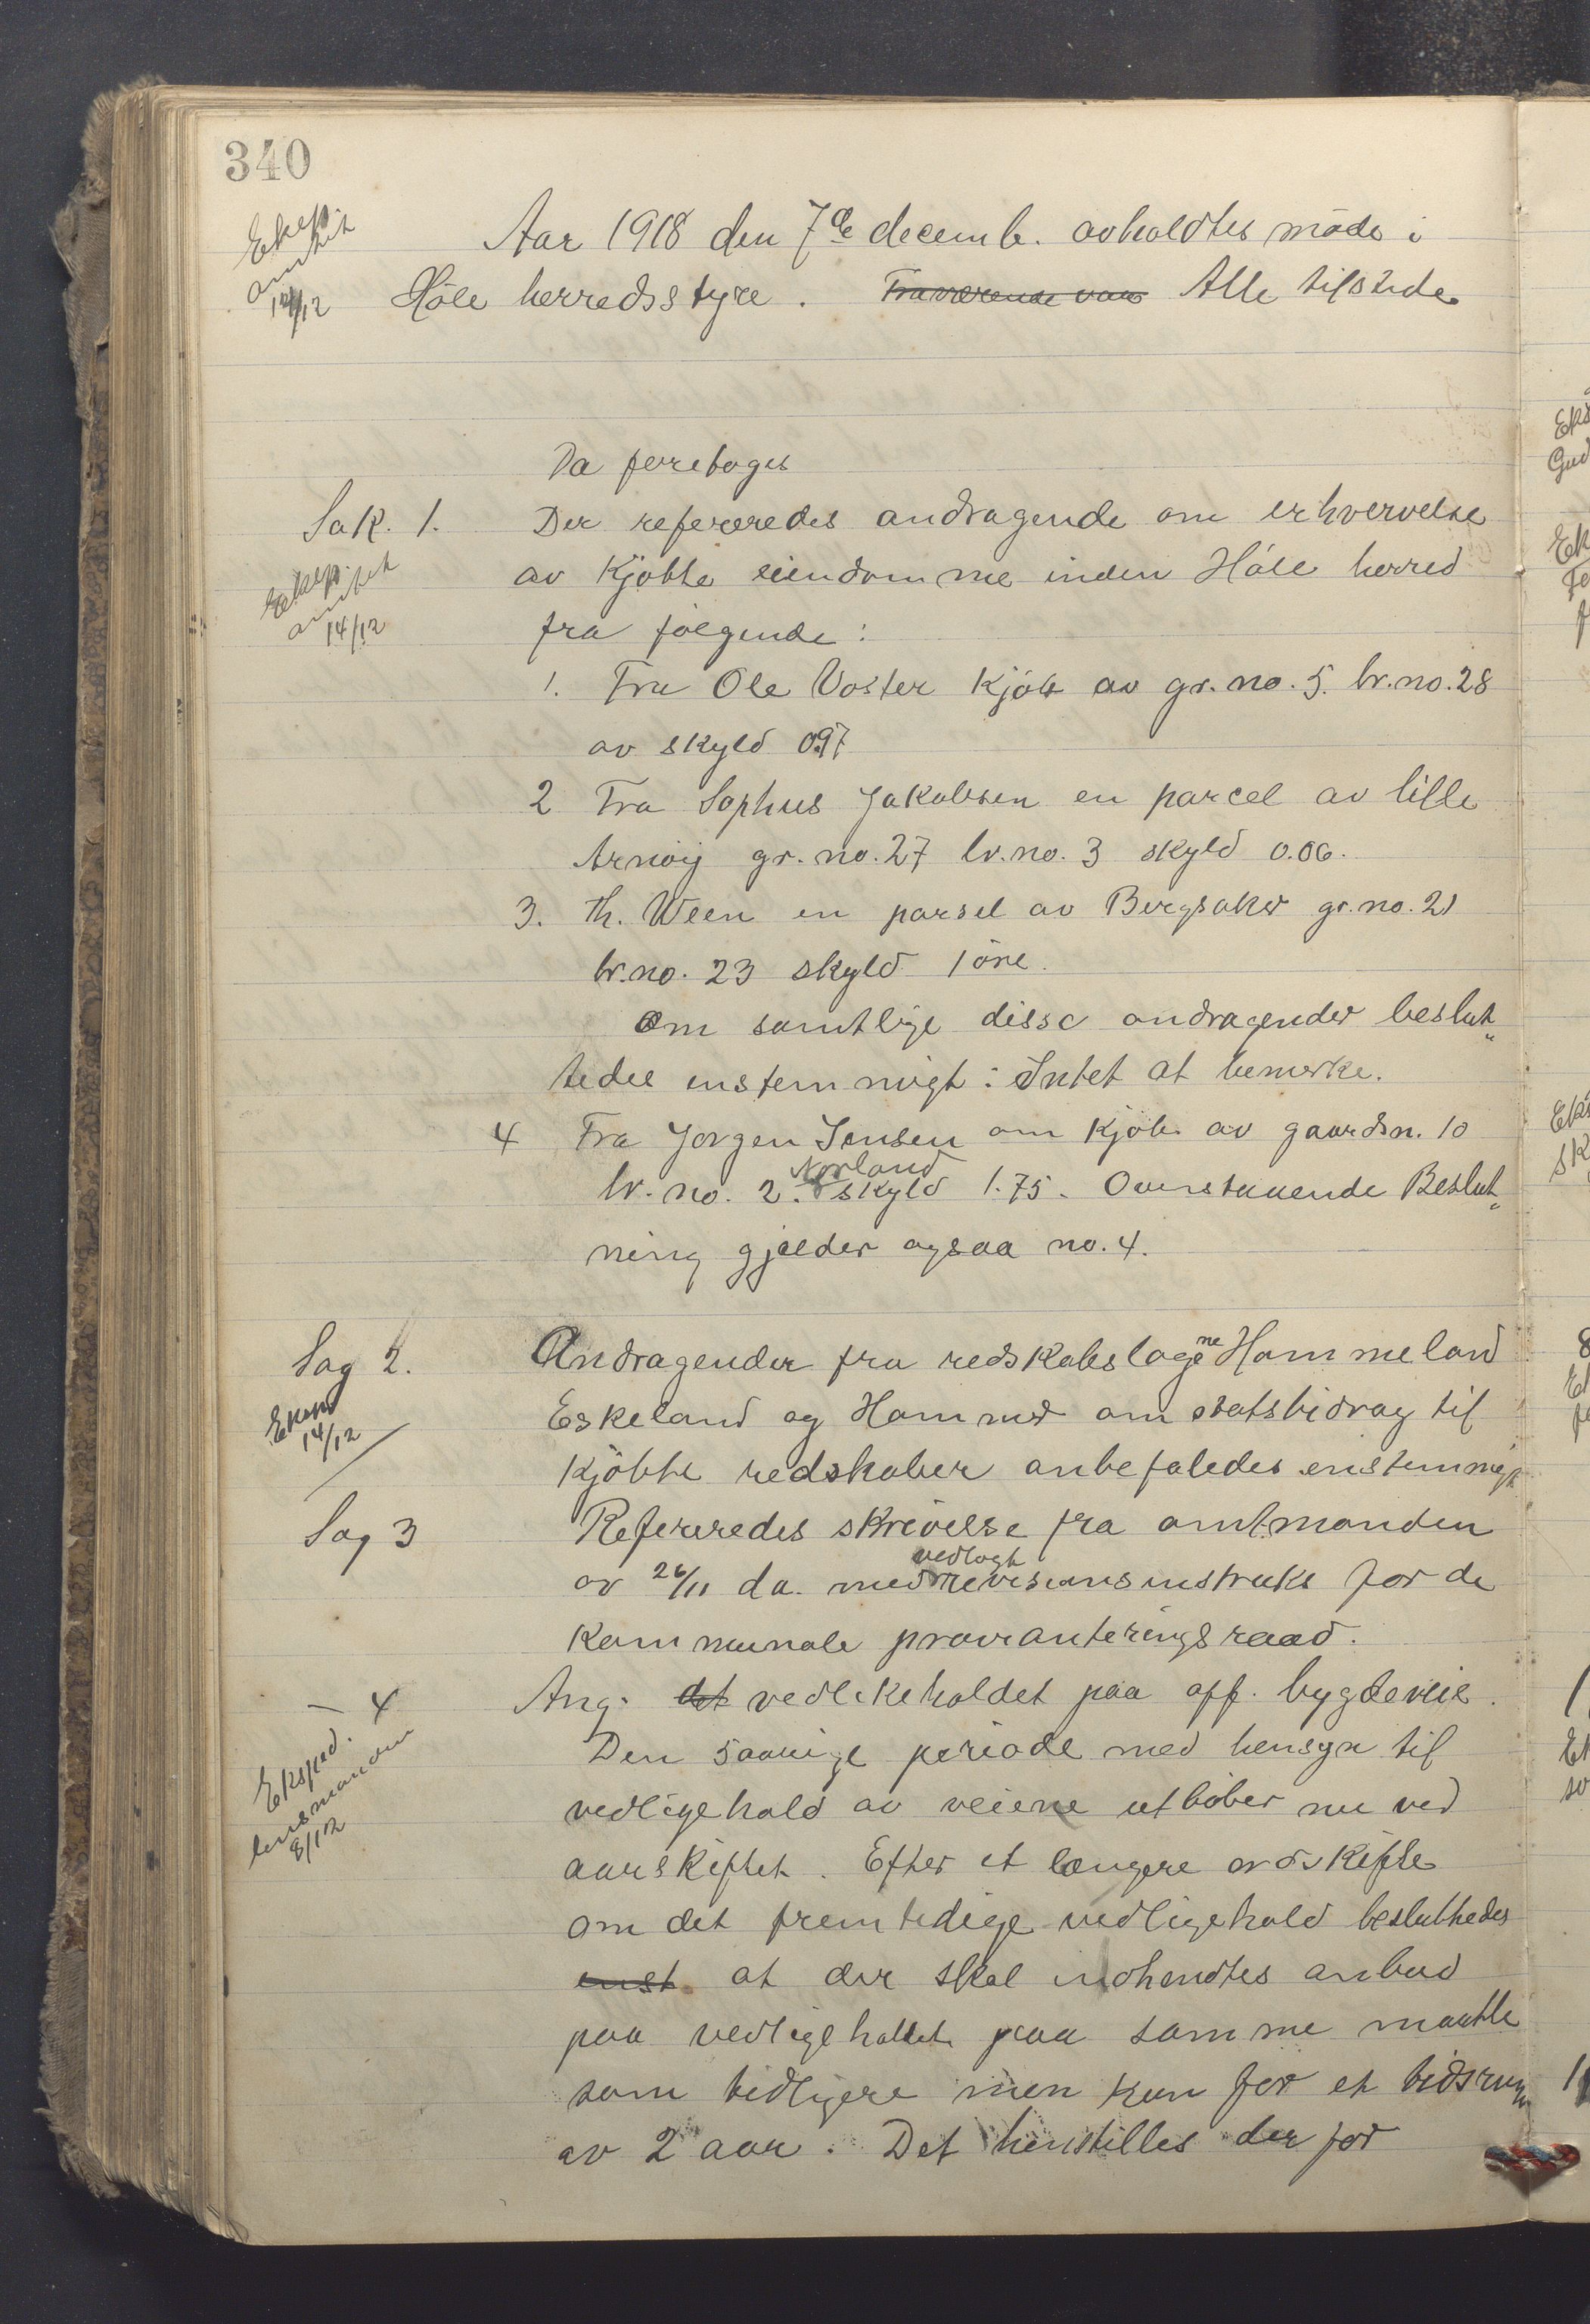 340
Eksp.
amtet
14/12
Aar 1918 den 7de decemb. avholdtes møde i
Høle herredsstyre. Fraværende var Alle tilstede
Da foretoges
Sak. 1.
Der refereredes andragende om erhvervelse
Eksp.
amtet
14/12
av kjøbte eiendomme inden Høle herred
fra følgende:
1. Fra Ole Voster kjøb av gr. no. 5. br. no. 28
av skyld 0.97
2 Fra Sophus Jakobsen en parcel av lille
Arnøy gr. no. 27 br. no. 3 skyld 0.06.
3. Th. Ween en parsel av Bergsaker gr. no. 21
br. no. 23 skyld 1 øre.
Om samtlige disse andragender beslut„
tedes enstemmigt: Intet at bemerke.
4 Fra Jørgen Jensen om kjøb av gaardsn. 10
br. no. 2. Norland skyld 1.75. Ovenstaaende Beslut„
ning gjælder ogsaa no. 4.
Sag 2.
Andragender fra redskabslagene Hommeland
Eksp
14/12
Eskeland og Hammer om statsbidrag til
kjøbte redskaber anbefaledes enstemmigt
Sag 3
Refereredes skrivelse fra amtmanden
av 26/11 d.a. med vedlagt revisionsinstruks for de
kommunale provianteringsraad.
— 4
Ang. det vedlikeholdet paa off. bygdeveie.
Eksped.
lensmanden
8/12
Den 5aarige periode med hensyn til
vedligehold av veiene utløber nu ved
aarskiftet. Efter et længere ordskifte
om det fremtidige vedligehold besluttedes
enst. at der skal indhendtes anbud
paa vedligeholdet paa samme maatte
som tidligere men kun for et tidsrum
av 2 aar. Det henstilles derfor